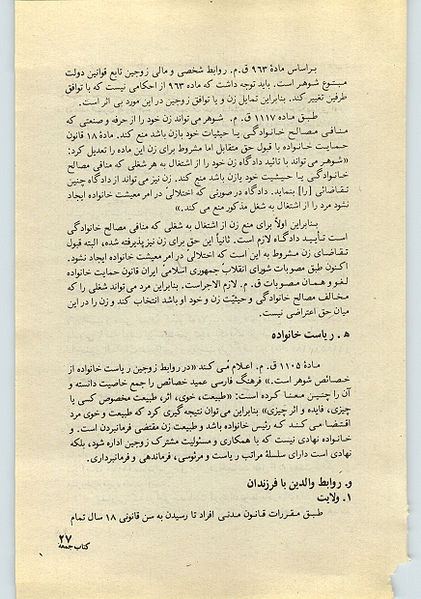 براساس مادهٔ ۹۶۳ ق.م. روابط شخصی و مالی زوجین تابع قوانین دولت
متبوع شوهر است. باید توجه داشت که ماده ۹۶۳ از احکامی نیست که با توافق
طرفین تغییر کند. بنابراین تمایل زن و یا توافق زوجین در این مورد بی اثر است.
طبق مادهٔ ۱۱۱۷ ق.م. شوهر می‌تواند زن خود را از حرفه و صنعتی که
منافی مصالح خانوادگی یا حیثیات خودبازن باشد منع کند. مادهٔ ۱۸ قانون
حمایت خانواده با قبول حق متقابل اما مشروط برای زن این ماده را تعدیل کرد:
«شوهر می‌تواند با تائید دادگاه زن خود را از اشتغال به هر شغلی که منافی مصالح
خانوادگی یا حیثیت خود یا زن باشد منع کند. زن نیز می‌تواند از دادگاه چنین
تقاضائی [را] بنماید. دادگاه در صورتی که اختلالی در امر معیشت خانواده ایجاد
نشود مرد را از اشتغال به شغل مذکور منع می‌کند.»
بنابراین اولاً برای منع زن از اشتغال به شغلی که منافی مصالح خانوادگی
است تأیید دادگاه لازم است. ثانیاً این حق برای زن نیز پذیرفته شده، البته قبول
تقاضای زن مشروط به این است که اختلالی در امر معیشت خانواده ایجاد نشود.
اکنون طبق مصوبات شورای انقلاب جمهوری اسلامی ایران قانون حمایت خانواده
لغو و همان مصوبات ق.م. لازم الاجراست. بنابراین مرد می‌تواند شغلی را که
مخالف مصالح خانوادگی و حیثیّت زن و خود او باشد انتخاب کند و زن را در این
میان حق اعتراضی نیست.
ه‍. ریاست خانواده
مادهٔ ۱۱۰۵ ق.م. اعلام می کند «در روابط زوجین ریاست خانواده از
خصائص شوهر است.» فرهنگ فارسی عمید خصائص را جمع خاصیت دانسته و
آن را چنین معنا کرده است: «طبیعت، خوی، اثر، طبیعت مخصوص کسی یا
چیزی، فایده و اثر چیزی» بنابراین می‌توان نتیجه گیری کرد که طبیعت و خوی مرد
اقتضا می کند که رئیس خانواده باشد و طبیعت زن مقتضی فرمانبردن است. و
خانواده نهادی نیست که با همکاری و مسئولیت مشترک زوجین اداره شود، بلکه
نهادی است دارای سلسلهٔ مراتب ریاست و مرئوسی، فرماندهی و فرمانبرداری.
و. روابط والدین با فرزندان
۱. ولایت
طبق مقررات قانون مدنی افراد تا رسیدن به سن قانونی ۱۸ سال تمام
۲۷
کتاب جمعه